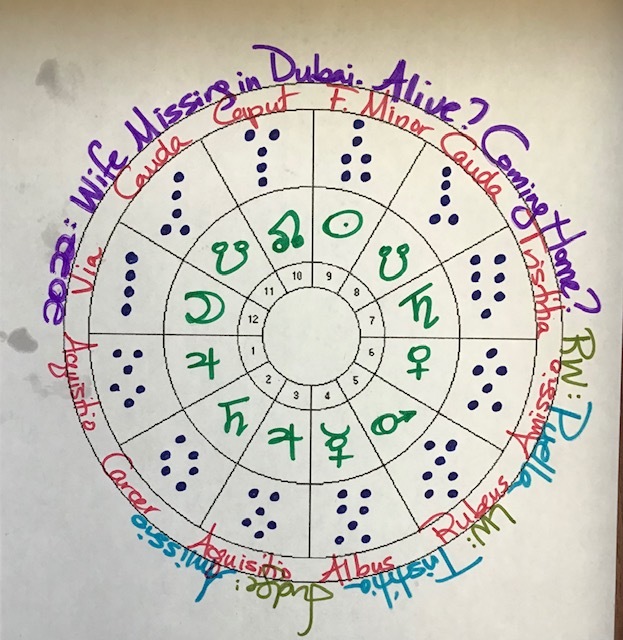 2022: Wife Missing in Dubai. Alive? Coming Home?
RW: Puella
LW: Tristitia
Judge: Amissio
Via
Cauda
Caput
F. Minor
Cauda
Tristitia
Amissio
Rubeus
Albus
Acquisitio
Carcer
Acquisitio
10
9
11
8
12
7
1
6
2
5
3
4